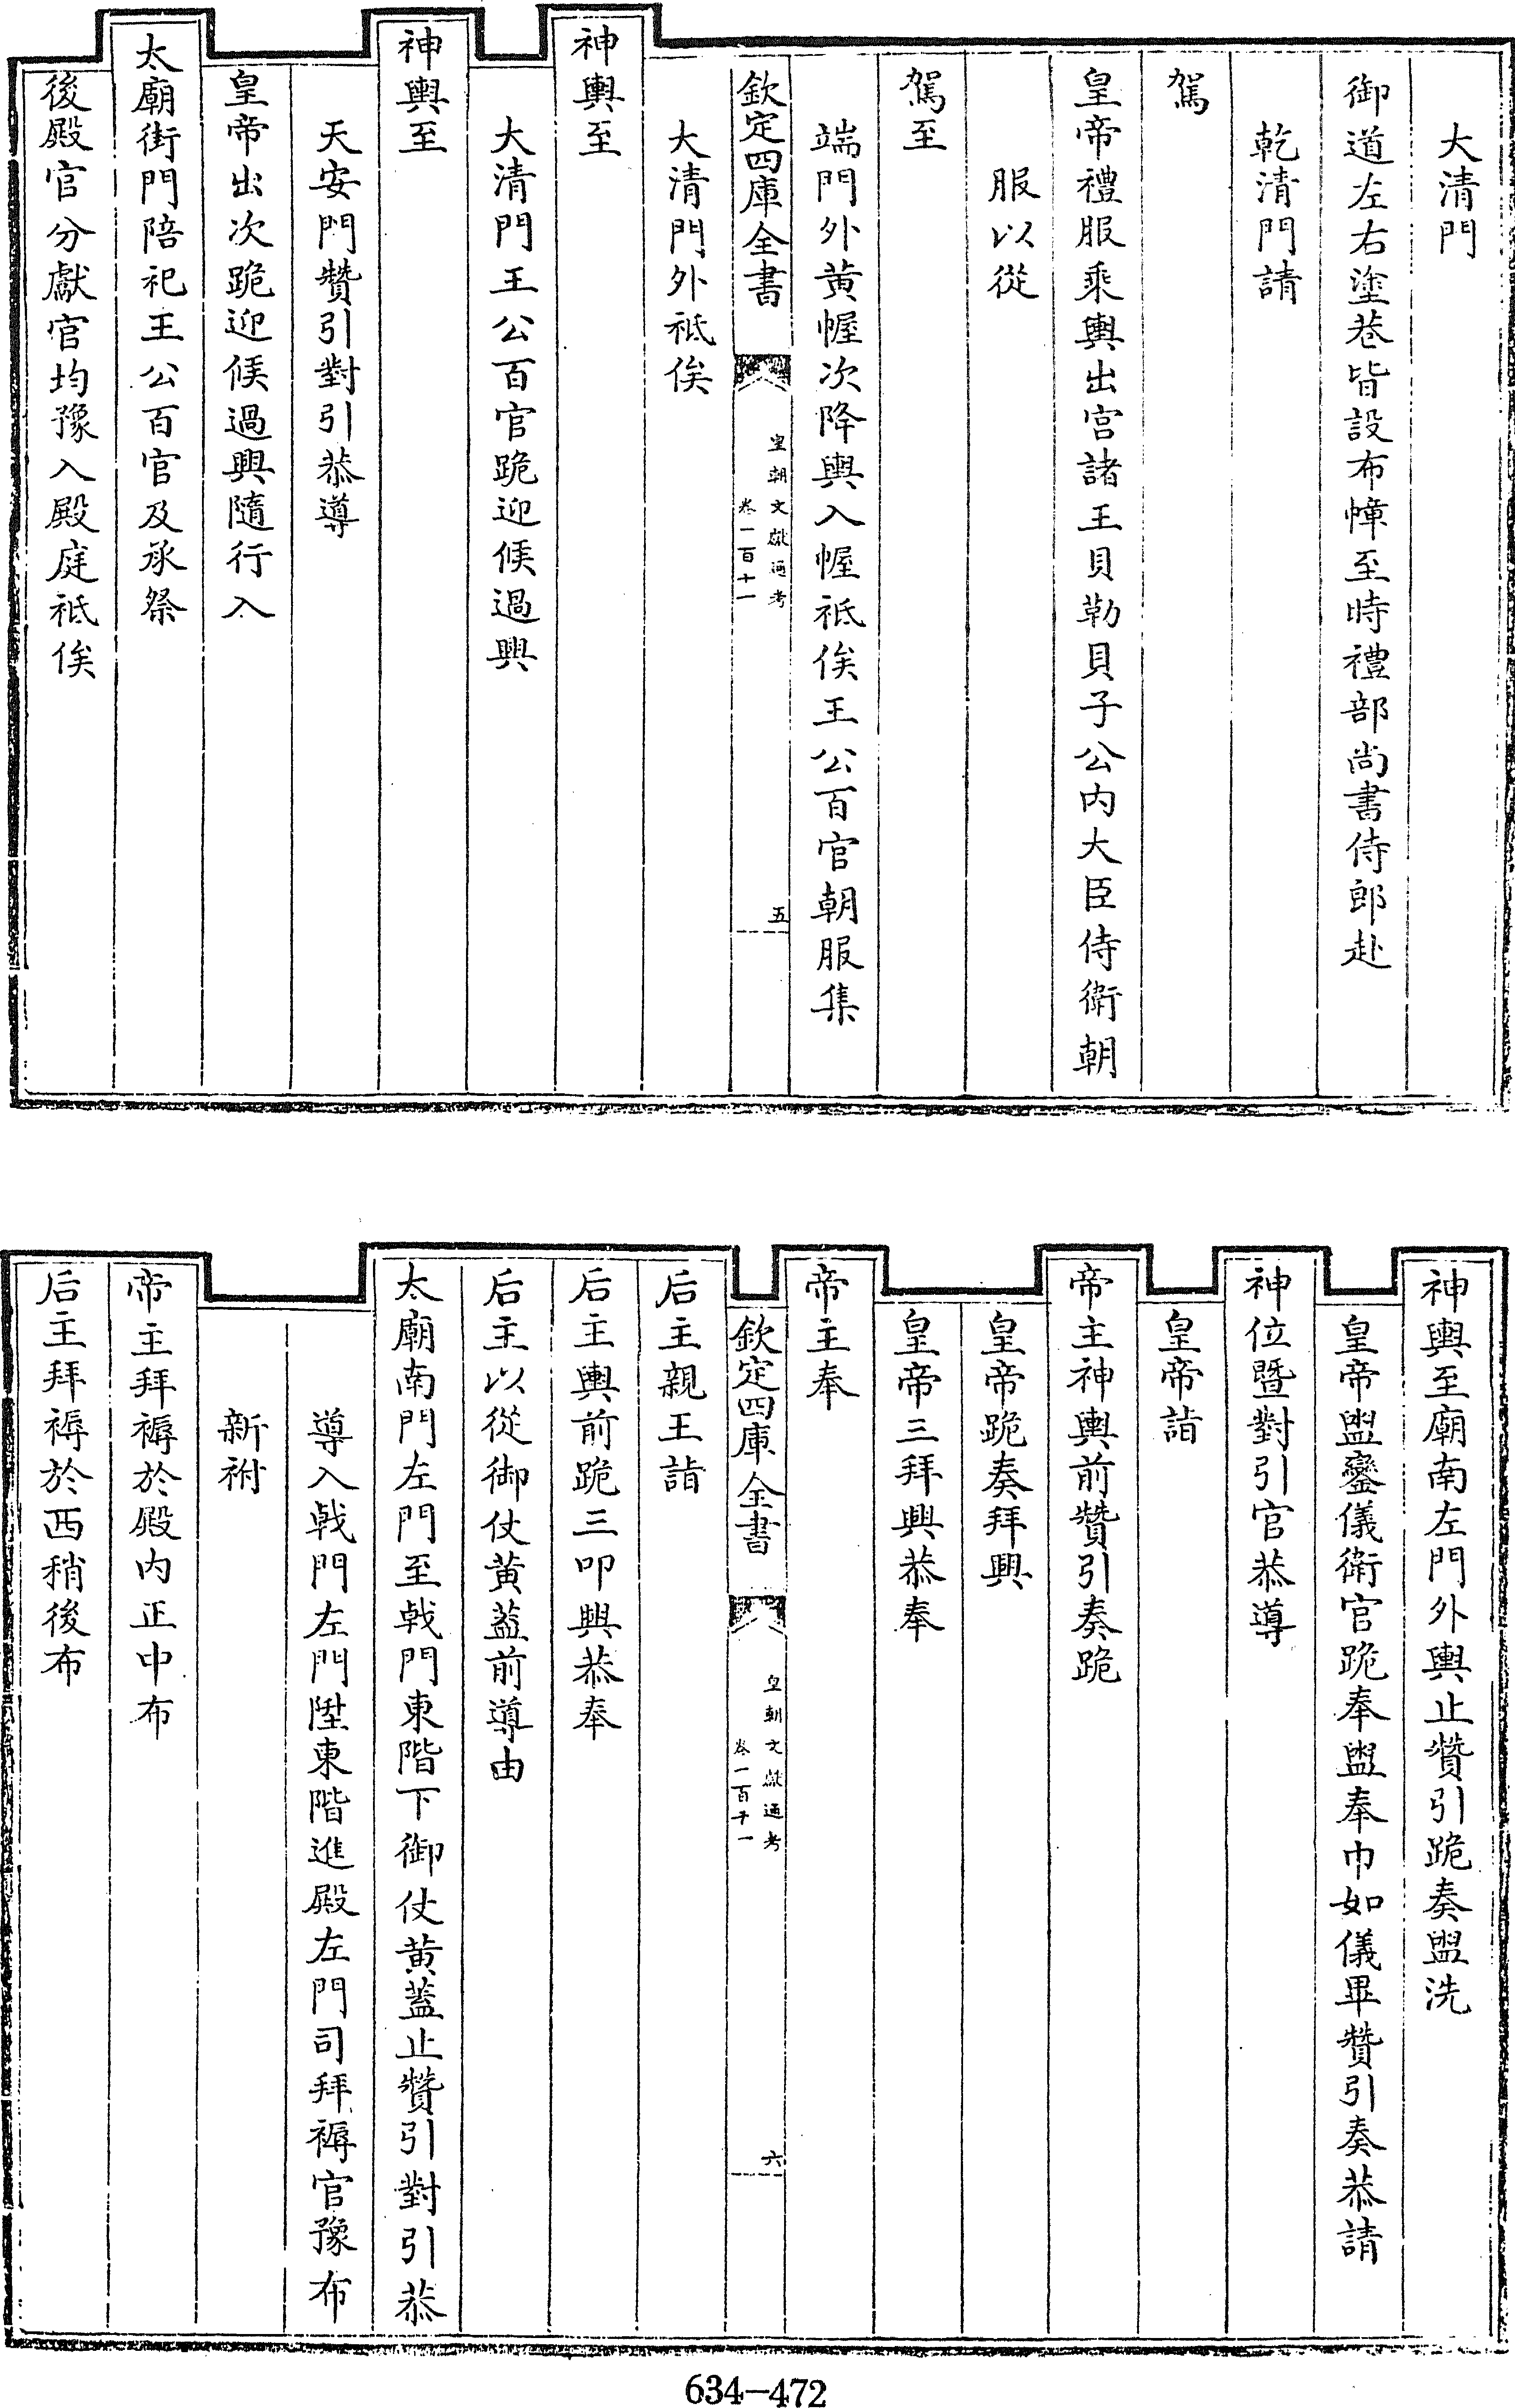 大清門
御道左右塗巷皆設布幛至時禮部尚書侍郎赴
乾清門請
駕
皇帝禮服乘輿出宮諸王貝勒貝子公内大臣侍衛朝
服以從
駕至
端門外黄幄次降輿入幄祗俟王公百官朝服集
欽定四庫全書
皇朝文獻通考
卷一百十一
五
大清門外祗俟
神輿至
大清門王公百官跪迎候過興
神輿至
天安門贊引對引恭導
皇帝出次跪迎候過興隨行入
太廟街門陪祀王公百官及承祭
後殿官分獻官均豫入殿庭祗俟
神輿至廟南左門外輿止贊引跪奏盥洗
皇帝盥鑾儀衛官跪奉盥奉巾如儀畢贊引奏恭請
神位暨對引官恭導
皇帝詣
帝主神輿前贊引奏跪
皇帝跪奏拜興
皇帝三拜興恭奉
帝主奉
欽定四庫全書
皇朝文獻通考
卷一百十一
六
后主親王詣
后主輿前跪三叩興恭奉
后主以從御仗黄蓋前導由
太廟南門左門至戟門東階下御仗黄蓋止贊引對引恭
導入戟門左門陞東階進殿左門司拜褥官豫布
新祔
帝主拜褥於殿内正中布
后主拜褥於西稍後布
634-472